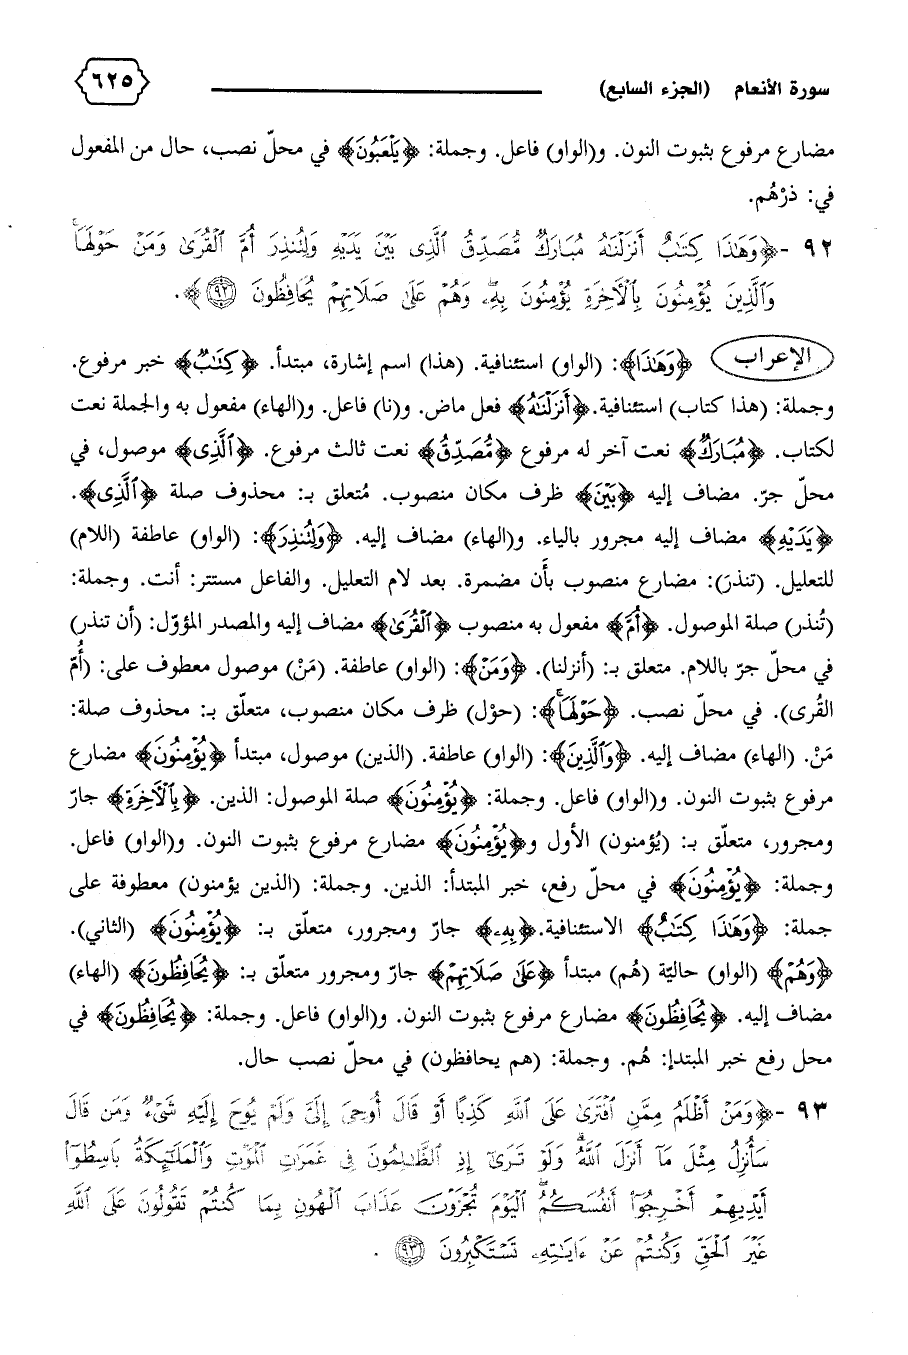 سورة الأنعام (الجزء السابع) ٦٢٥
مضارع مرفوع بثبوت النون. و(الواو) فاعل. وجملة: ﴿يَلْعَبُونَ﴾ في محلّ نصب، حال من المفعول
في: ذرْهُم.
٩٢ - ﴿وَهَٰذَا كِتَٰبٌ أَنزَلْنَٰهُ مُبَارَكٌ مُّصَدِّقُ ٱلَّذِى بَيْنَ يَدَيْهِ وَلِتُنذِرَ أُمَّ ٱلْقُرَىٰ وَمَنْ حَوْلَهَا ۚ
وَٱلَّذِينَ يُؤْمِنُونَ بِٱلْءَاخِرَةِ يُؤْمِنُونَ بِهِۦ ۖ وَهُمْ عَلَىٰ صَلَاتِهِمْ يُحَافِظُونَ ٩٢﴾.
الإعراب ﴿وَهَٰذَا﴾: (الواو) استئنافية. (هذا) اسم إشارة، مبتدأ. ﴿كِتَٰبٌ﴾ خبر مرفوع.
وجملة: (هذا كتاب) استئنافية. ﴿أَنزَلْنَٰهُ﴾ فعل ماض. و(نا) فاعل. و(الهاء) مفعول به والجملة نعت
لكتاب. ﴿مُبَارَكٌ﴾ نعت آخر له مرفوع ﴿مُّصَدِّقُ﴾ نعت ثالث مرفوع. ﴿ٱلَّذِى﴾ موصول، في
محلّ جرّ. مضاف إليه ﴿بَيْنَ﴾ ظرف مكان منصوب. مُتعلق بـ: محذوف صلة ﴿ٱلَّذِى﴾.
﴿يَدَيْهِ﴾ مضاف إليه مجرور بالياء. و(الهاء) مضاف إليه. ﴿وَلِتُنذِرَ﴾: (الواو) عاطفة (اللام)
للتعليل. (تنذرَ): مضارع منصوب بأَن مضمرة. بعد لام التعليل. والفاعل مستتر: أنت. وجملة:
(تُنذر) صلة الموصول. ﴿أُمَّ﴾ مفعول به منصوب ﴿ٱلْقُرَىٰ﴾ مضاف إليه والمصدر المؤوّل: (أن تنذر)
في محلّ جرّ باللام. متعلق بـ: (أنزلنا). ﴿وَمَنْ﴾: (الواو) عاطفة. (مَنْ) موصول معطوف على: (أُمّ
القُرى). في محلّ نصب. ﴿حَوْلَهَا ۚ﴾: (حوْل) ظرف مكان منصوب، متعلّق بـ: محذوف صلة:
مَنْ. (الهاء) مضاف إليه. ﴿وَٱلَّذِينَ﴾: (الواو) عاطفة. (الذين) موصول، مبتدأ ﴿يُؤْمِنُونَ﴾ مضارع
مرفوع بثبوت النون. و(الواو) فاعل. وجملة: ﴿يُؤْمِنُونَ﴾ صلة الموصول: الذين. ﴿بِٱلْءَاخِرَةِ﴾ جارّ
ومجرور، متعلّق بـ: (يُؤمنون) الأول و﴿يُؤْمِنُونَ﴾ مضارع مرفوع بثبوت النون. و(الواو) فاعل.
وجملة: ﴿يُؤْمِنُونَ﴾ في محلّ رفع، خبر المبتدأ: الذين. وجملة: (الذين يؤمنون) معطوفة على
جملة: ﴿وَهَٰذَا كِتَٰبٌ﴾ الاستئنافية. ﴿بِهِۦ﴾ جارّ ومجرور، متعلّق بـ: ﴿يُؤْمِنُونَ﴾ (الثاني).
﴿وَهُمْ﴾ (الواو) حاليّة (هُم) مبتدأ ﴿عَلَىٰ صَلَاتِهِمْ﴾ جارّ ومجرور متعلّق بـ: ﴿يُحَافِظُونَ﴾ (الهاء)
مضاف إليه. ﴿يُحَافِظُونَ﴾ مضارع مرفوع بثبوت النون. و(الواو) فاعل. وجملة: ﴿يُحَافِظُونَ﴾ في
محل رفع خبر المبتدإ: هُم. وجملة: (هم يحافظون) في محلّ نصب حال.
٩٣ - ﴿وَمَنْ أَظْلَمُ مِمَّنِ ٱفْتَرَىٰ عَلَى ٱللَّهِ كَذِبًا أَوْ قَالَ أُوحِىَ إِلَىَّ وَلَمْ يُوحَ إِلَيْهِ شَىْءٌ وَمَن قَالَ
سَأُنزِلُ مِثْلَ مَآ أَنزَلَ ٱللَّهُ ۗ وَلَوْ تَرَىٰٓ إِذِ ٱلظَّٰلِمُونَ فِى غَمَرَٰتِ ٱلْمَوْتِ وَٱلْمَلَٰٓئِكَةُ بَاسِطُوٓا۟
أَيْدِيهِمْ أَخْرِجُوٓا۟ أَنفُسَكُمُ ۖ ٱلْيَوْمَ تُجْزَوْنَ عَذَابَ ٱلْهُونِ بِمَا كُنتُمْ تَقُولُونَ عَلَى ٱللَّهِ
غَيْرَ ٱلْحَقِّ وَكُنتُمْ عَنْ ءَايَٰتِهِۦ تَسْتَكْبِرُونَ ٩٣.